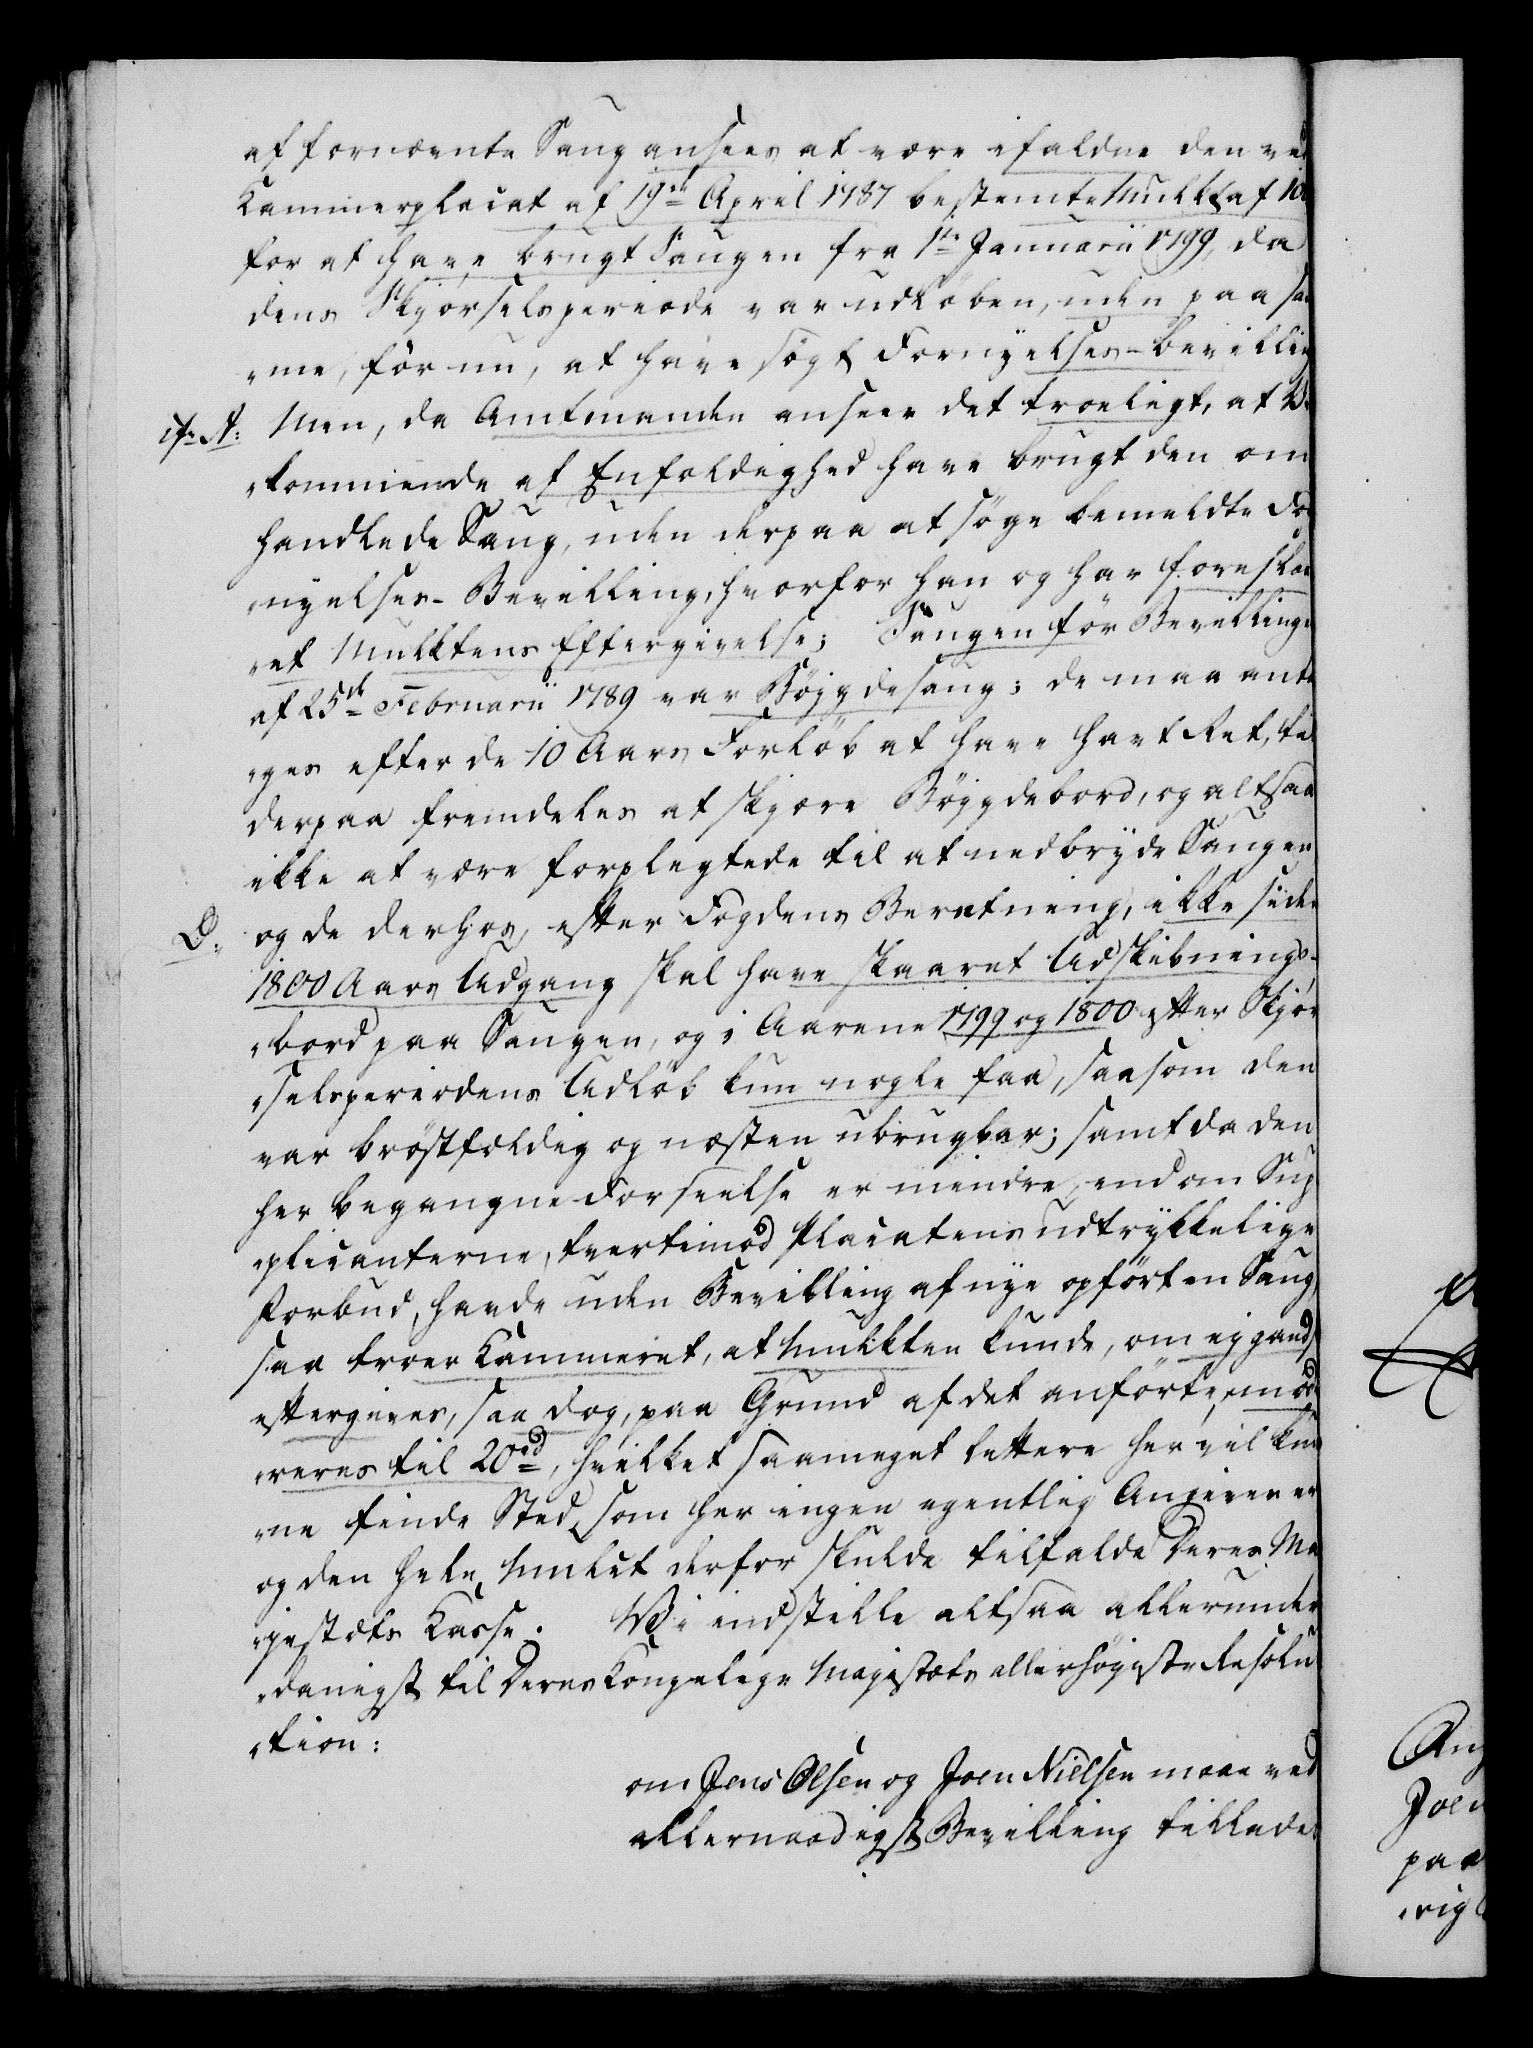 af fornævnte Saug ansees at være ifaldne den ved
Kammerplacat af 19de April 1787 bestemte Mulkt af 10
for at have brugt Saugen fra 1te Januarii 1799, da
dens Skjørselsperiode var udløben, uden paa sa
„me, før nu, at have søgt Fornyelses-bevilling
cfr A: Men, da Amtmanden anseer det troeligt, at V
„kommende af Enfoldighed have brugt den om
handlede Saug, uden derpaa at søge bemeldte For
„nyelses-Bevilling, hvorfor han og har foreslaa
„et Mulktens Eftergivelse; Saugen før Bevillingen
af 25de Februarii 1789 var Bøygdesaug; de maa anta
„ges efter de 10 Aars Forløb at have havt Ret, til
derpaa fremdeles at skjære Bøygdebord, og altsaa
ikke at være forpligtede til at nedbryde Saugen
D. og de derhos, efter Fogdens Beretning, ikke siden
1800 Aars Udgang skal have skaaret Udskibnings-
„bord paa Saugen, og i Aarene 1799 og 1800 efter Skjør
„selsperiodens Udløb kun nogle faa, saasom den
var brøstfældig og næsten ubrugbar; samt da den
her begangne Forseelse er mindre, end om Sup
„plicanterne, tvertimod Placatens udtrykkelige
Forbud, havde uden Bevilling af nye opført en Saug,
saa troer Kammeret, at Mulkten kunde, om ej gandske
eftergives, saa dog, paa Grund af det anførte, mode
„reres til 20rd, hvilket saameget lettere her vil kun
„ne finde Sted, som her ingen egentlig Angiver er
og den hele Mulct derfor skulde tilfalde Deres Ma
„jestæts Kasse. Vi indstille altsaa allerunder
„danigst til Deres Kongelige Majestæts allerhøjeste Resolu
„tion:
om Jens Olsen og Joen Nielsen maae ved
allernaadigst Bevilling tillades
Joen
paa
„rig